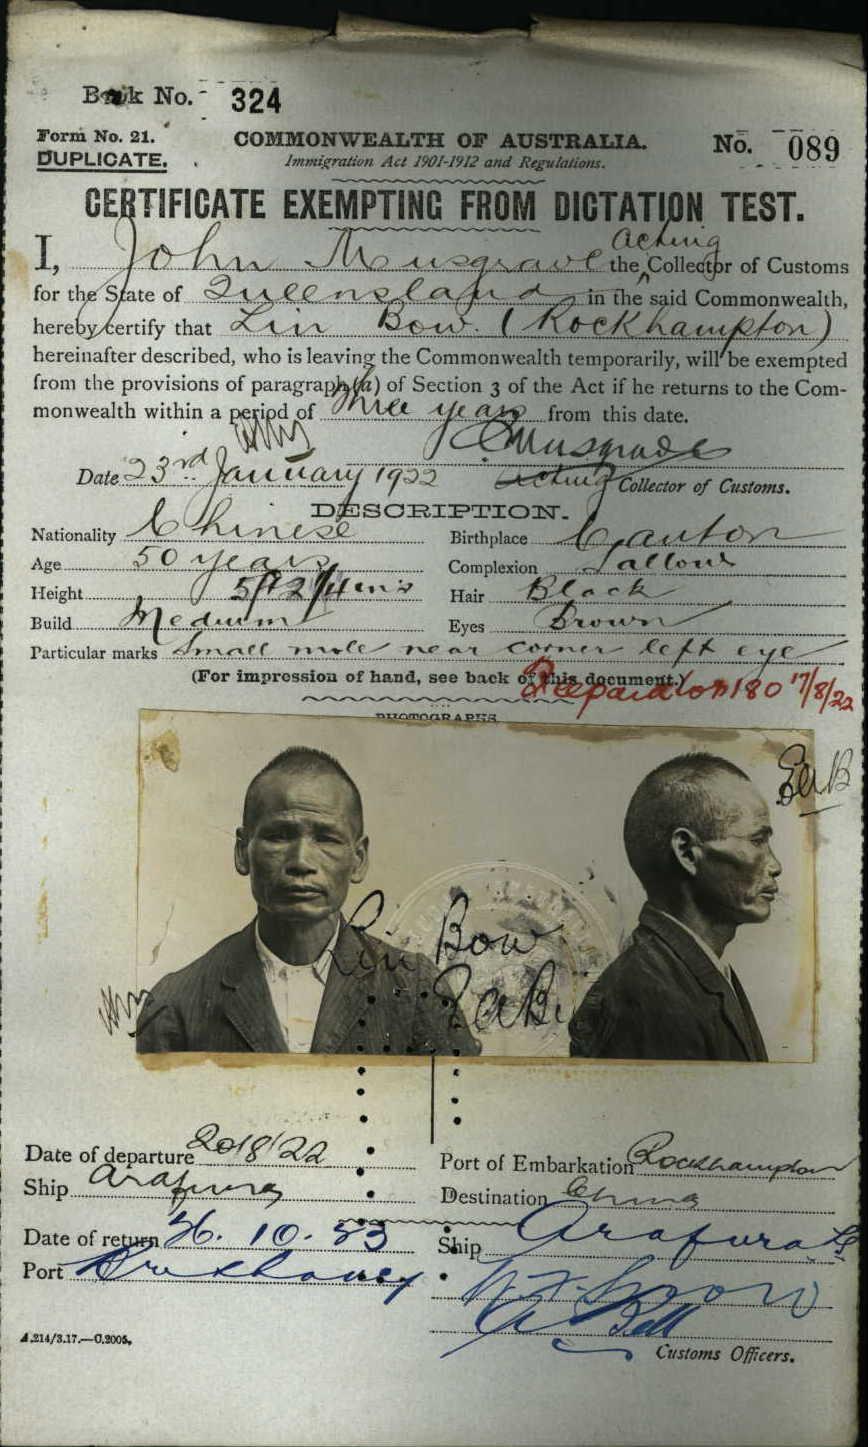 Book No. 324
Form No. 21. COMMONWEALTH OF AUSTRALIA. No. 089
DUPLICATE. Immigration Act 1901-1912 and Regulations.
CERTIFICATE EXEMPTING FROM DICTATION TEST.
I, John Musgrave the acting Collector of Customs
for the State of Queensland in the said Commonwealth,
hereby certify that Lin Bow. (Rockhampton)
hereinafter described, who is leaving the Commonwealth temporarily, will be exempted
from the provisions of paragraph (a) of Section 3 of the Act if he returns to the Com-
monwealth within a period of three years from this date.
Musgrave
Date 23rd January 1922 acting Collector of Customs.
DESCRIPTION.
Nationality Chinese Birthplace Canton
Age 50 years Complexion Sallow
Height 5ft 2 1/4 in's Hair Black
Build Medium Eyes Brown
Particular marks Small mole near corner left eye
(For impression of hand, see back of this document.)
180 17/8/22
PHOTOGRAPHS
Lin Bow
Date of departure 20/8/22 Port of Embarkation Rockhampton
Ship Arafura Destination China
Date of return 26.10.23 Ship Arafura
Port
Bell
A.214/3.17.—C.2005. Customs Officers.